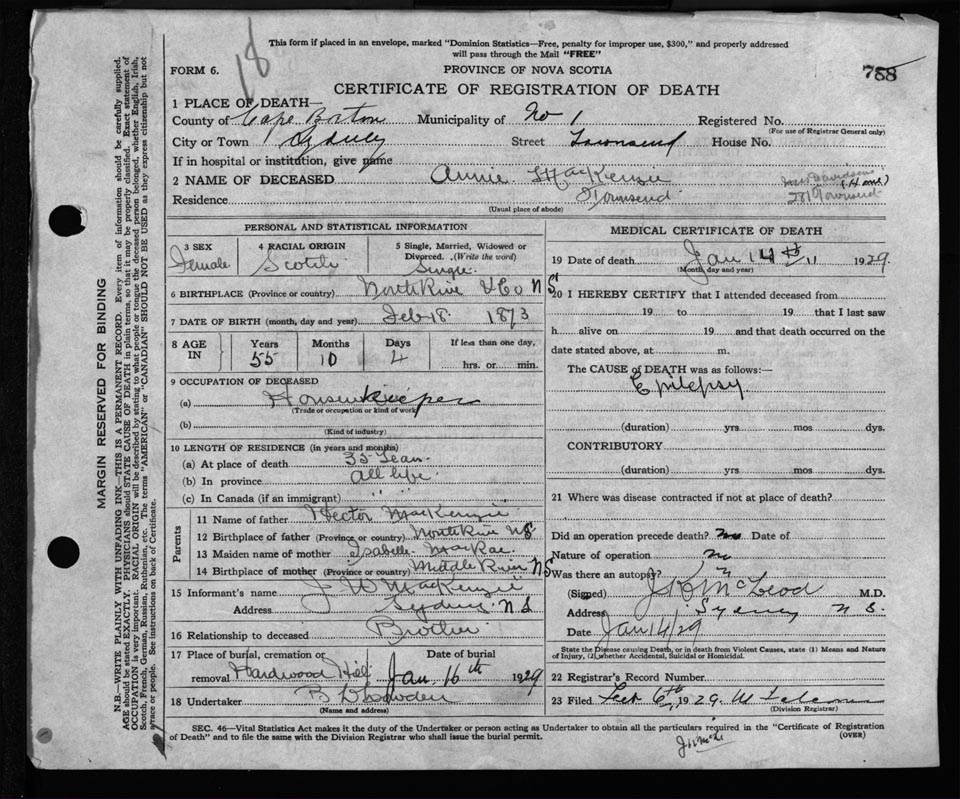 18
This form if placed in an envelope, marked "Dominion Statistics—Free, penalty for improper use, $300," and properly addressed
will pass through the Mail "FREE"
FORM 6.
PROVINCE OF NOVA SCOTIA
CERTIFICATE OF REGISTRATION OF DEATH
1 PLACE OF DEATH—
County of Cape Breton Municipality of No 1 Registered No.
(For use of Registrar General only)
City or Town Sydney Street Townsend House No.
If in hospital or institution, give name
2 NAME OF DECEASED Annie MacKenzie
Residence Townsend 281 Townsend
(Usual place of abode)
PERSONAL AND STATISTICAL INFORMATION
3 SEX 4 RACIAL ORIGIN 5 Single, Married, Widowed or Divorced. (Write the word)
Female Scotch Single
6 BIRTHPLACE (Province or country) North River V Co N S
7 DATE OF BIRTH (month, day and year) Feb 18 1873
8 AGE IN Years Months Days If less than one day,
55 10 4 hrs. or min.
9 OCCUPATION OF DECEASED
(a) Housekeeper
(Trade or occupation or kind of work)
(b)
(Kind of industry)
10 LENGTH OF RESIDENCE (in years and months)
(a) At place of death 35 Years
(b) In province All life
(c) In Canada (if an immigrant) " "
Parents
11 Name of father Hector MacKenzie
12 Birthplace of father (Province or country) North River N S
13 Maiden name of mother Isabelle MacRae
14 Birthplace of mother (Province or country) Middle River N S
15 Informant's name J W MacKenzie
Address Sydney N S
16 Relationship to deceased Brother
17 Place of burial, cremation or removal Date of burial
Hardwood Hill Jan 16th 1929
18 Undertaker
(Name and address)
MEDICAL CERTIFICATE OF DEATH
19 Date of death Jan 14th 1929
(Month, day and year)
20 I HEREBY CERTIFY that I attended deceased from
19 to 19 that I last saw
h alive on 19 and that death occurred on the
date stated above, at m.
The CAUSE of DEATH was as follows:—
Epilepsy
(duration) yrs mos dys.
CONTRIBUTORY
(duration) yrs mos dys.
21 Where was disease contracted if not at place of death?
Did an operation precede death? no Date of
Nature of operation
Was there an autopsy? no
(Signed) J K McLeod M.D.
Address Sydney N S.
Date Jan 14/29
State the Disease causing Death, or in death from Violent Causes, state (1) Means and Nature
of Injury, (2) whether Accidental, Suicidal or Homicidal.
22 Registrar's Record Number
23 Filed Feb 6th 1929
(Division Registrar)
SEC. 46—Vital Statistics Act makes it the duty of the Undertaker or person acting as Undertaker to obtain all the particulars required in the "Certificate of Registration
of Death" and to file the same with the Division Registrar who shall issue the burial permit.
(OVER)
MARGIN RESERVED FOR BINDING
N.B.—WRITE PLAINLY WITH UNFADING INK—THIS IS A PERMANENT RECORD. Every item of information should be carefully supplied.
AGE should be stated EXACTLY. PHYSICIANS should STATE CAUSE OF DEATH in plain terms, so that it may be properly classified. Exact statement of
OCCUPATION is very important. RACIAL ORIGIN will be described by stating to what people or tongue the deceased person belonged, whether English, Irish,
Scotch, French, German, Russian, Ruthenian, etc. The terms "AMERICAN" or "CANADIAN" SHOULD NOT BE USED as they express citizenship but not
a race or people. See instructions on back of Certificate.